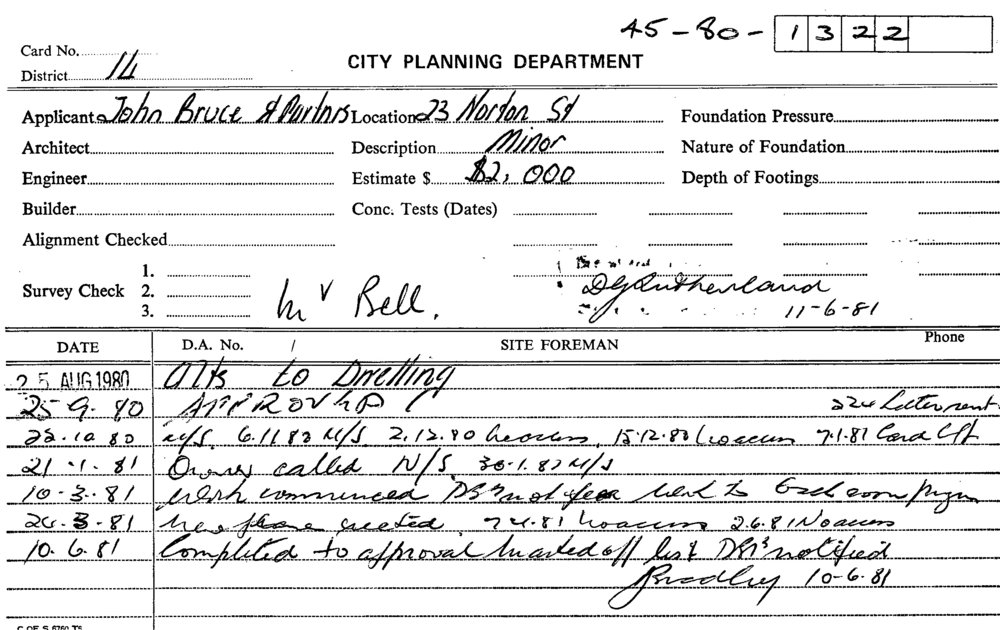 45-80-1322
Card No.
District 14
CITY PLANNING DEPARTMENT
Applicant John Bruce & Partnrs Location 23 Norton St Foundation Pressure
Architect Description Minor Nature of Foundation
Engineer Estimate $ $2,000 Depth of Footings
Builder Conc. Tests (Dates)
Alignment Checked
Survey Check 1.
2.
3.
Mr Bell.
DGSutherland
11-6-81
DATE D.A. No. / SITE FOREMAN Phone
25 AUG 1980 Alts to Dwelling
25-9-80 APPROVED 224 Letter sent
22.10.80 N/S 6.11.80 N/S 2.12.80 No access 15.12.80 No access 7.1.81 Card Left
21.1.81 Owner called N/S 30.1.81 N/S
10-3-81 Work commenced
24-3-81 erected 7.4.81 No access 2.6.81 No access
10.6.81 Completed to approval marked off list notified
Bradley 10-6-81
C OF S 6760 TS